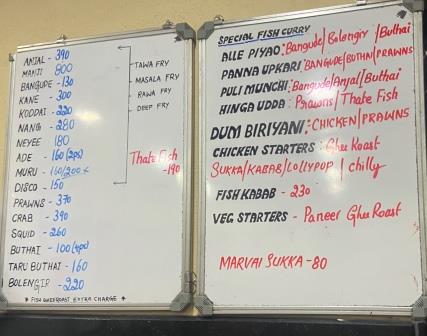 ANJAL - 390
MANJI 800
BANGUDE - 130
KANE - 300
KODDAI - 220
NANG - 280
NEYEE 180
ADE - 160 (2ps)
MURU - 160/200 x
DISCO - 150
PRAWNS - 370
CRAB - 390
SQUID - 260
BUTHAI - 100 (4ps)
TARU BUTHAI - 160
BOLENGIR - 220
* FISH GHEEROAST EXTRA CHARGE *
TAWA FRY
MASALA FRY
RAWA FRY
DEEP FRY
Thate Fish
- 190
SPECIAL FISH CURRY
ALLE PIYAO: Bangude/Bolengir/Buthai
PANNA UPKARI: BANGUDE/BUTHAI/PRAWNS
PULI MUNCHI: Bangude/Anjal/Buthai
HINGA UDDA: Prawns/Thate Fish
DUM BIRIYANI: CHICKEN/PRAWNS
CHICKEN STARTERS: Ghee Roast
SUKKA/KABAB/LOLLYPOP/chilly
FISH KABAB - 230
VEG STARTERS - Paneer Ghee Roast
MARVAI SUKKA - 80